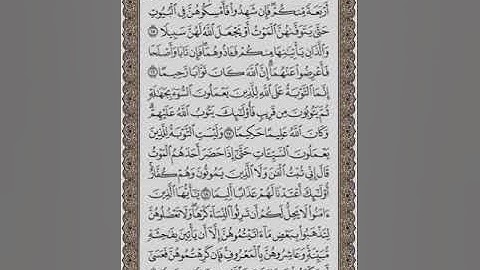 أَرْبَعَةً مِّنكُمْ ۖ فَإِن شَهِدُوا۟ فَأَمْسِكُوهُنَّ فِى ٱلْبُيُوتِ
حَتَّىٰ يَتَوَفَّىٰهُنَّ ٱلْمَوْتُ أَوْ يَجْعَلَ ٱللَّهُ لَهُنَّ سَبِيلًا ۝١٥
وَٱلَّذَانِ يَأْتِيَٰنِهَا مِنكُمْ فَـَٔاذُوهُمَا ۖ فَإِن تَابَا وَأَصْلَحَا
فَأَعْرِضُوا۟ عَنْهُمَآ ۗ إِنَّ ٱللَّهَ كَانَ تَوَّابًا رَّحِيمًا ۝١٦
إِنَّمَا ٱلتَّوْبَةُ عَلَى ٱللَّهِ لِلَّذِينَ يَعْمَلُونَ ٱلسُّوٓءَ بِجَهَٰلَةٍ
ثُمَّ يَتُوبُونَ مِن قَرِيبٍ فَأُو۟لَٰٓئِكَ يَتُوبُ ٱللَّهُ عَلَيْهِمْ ۗ
وَكَانَ ٱللَّهُ عَلِيمًا حَكِيمًا ۝١٧ وَلَيْسَتِ ٱلتَّوْبَةُ لِلَّذِينَ
يَعْمَلُونَ ٱلسَّيِّـَٔاتِ حَتَّىٰٓ إِذَا حَضَرَ أَحَدَهُمُ ٱلْمَوْتُ
قَالَ إِنِّى تُبْتُ ٱلْـَٰٔنَ وَلَا ٱلَّذِينَ يَمُوتُونَ وَهُمْ كُفَّارٌ ۚ
أُو۟لَٰٓئِكَ أَعْتَدْنَا لَهُمْ عَذَابًا أَلِيمًا ۝١٨ يَٰٓأَيُّهَا ٱلَّذِينَ
ءَامَنُوا۟ لَا يَحِلُّ لَكُمْ أَن تَرِثُوا۟ ٱلنِّسَآءَ كَرْهًا ۖ وَلَا تَعْضُلُوهُنَّ
لِتَذْهَبُوا۟ بِبَعْضِ مَآ ءَاتَيْتُمُوهُنَّ إِلَّآ أَن يَأْتِينَ بِفَٰحِشَةٍ
مُّبَيِّنَةٍ ۚ وَعَاشِرُوهُنَّ بِٱلْمَعْرُوفِ ۚ فَإِن كَرِهْتُمُوهُنَّ فَعَسَىٰٓ